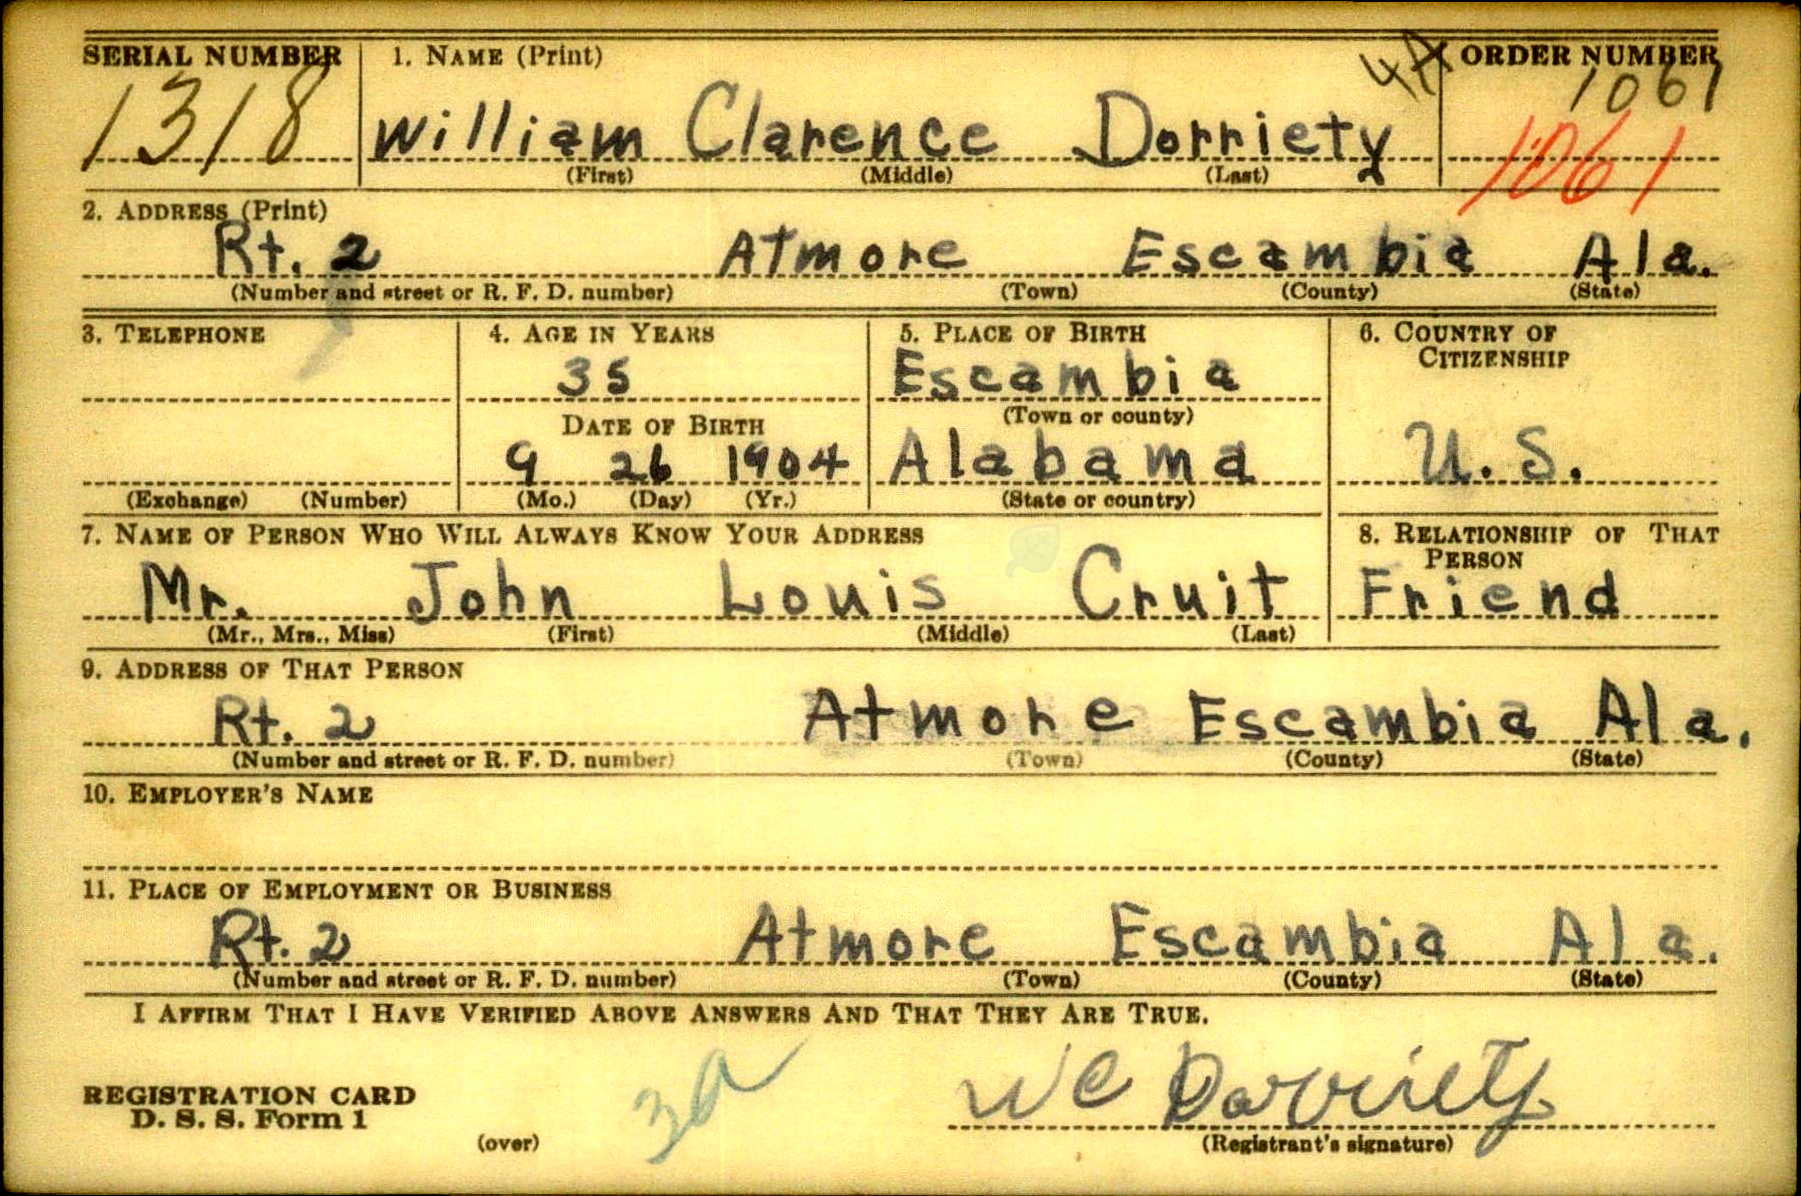 SERIAL NUMBER 1. NAME (Print) 4A ORDER NUMBER
1318 William Clarence Dorriety 1061
1061
(First) (Middle) (Last)
2. ADDRESS (Print)
Rt. 2 Atmore Escambia Ala.
(Number and street or R. F. D. number) (Town) (County) (State)
3. TELEPHONE 4. AGE IN YEARS 5. PLACE OF BIRTH 6. COUNTRY OF CITIZENSHIP
35 Escambia
DATE OF BIRTH (Town or county)
9 26 1904 Alabama U.S.
(Exchange) (Number) (Mo.) (Day) (Yr.) (State or country)
7. NAME OF PERSON WHO WILL ALWAYS KNOW YOUR ADDRESS 8. RELATIONSHIP OF THAT PERSON
Mr. John Louis Cruit Friend
(Mr., Mrs., Miss) (First) (Middle) (Last)
9. ADDRESS OF THAT PERSON
Rt. 2 Atmore Escambia Ala.
(Number and street or R. F. D. number) (Town) (County) (State)
10. EMPLOYER'S NAME
11. PLACE OF EMPLOYMENT OR BUSINESS
Rt. 2 Atmore Escambia Ala.
(Number and street or R. F. D. number) (Town) (County) (State)
I AFFIRM THAT I HAVE VERIFIED ABOVE ANSWERS AND THAT THEY ARE TRUE.
REGISTRATION CARD
D. S. S. Form 1
(over) 3a W C Dorriety
(Registrant's signature)